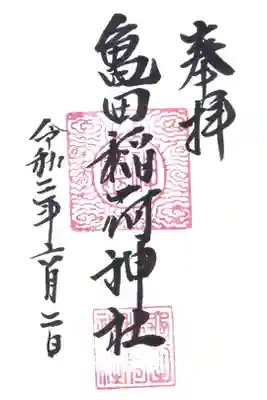 奉拝
亀田稲荷神社
令和二年六月二日